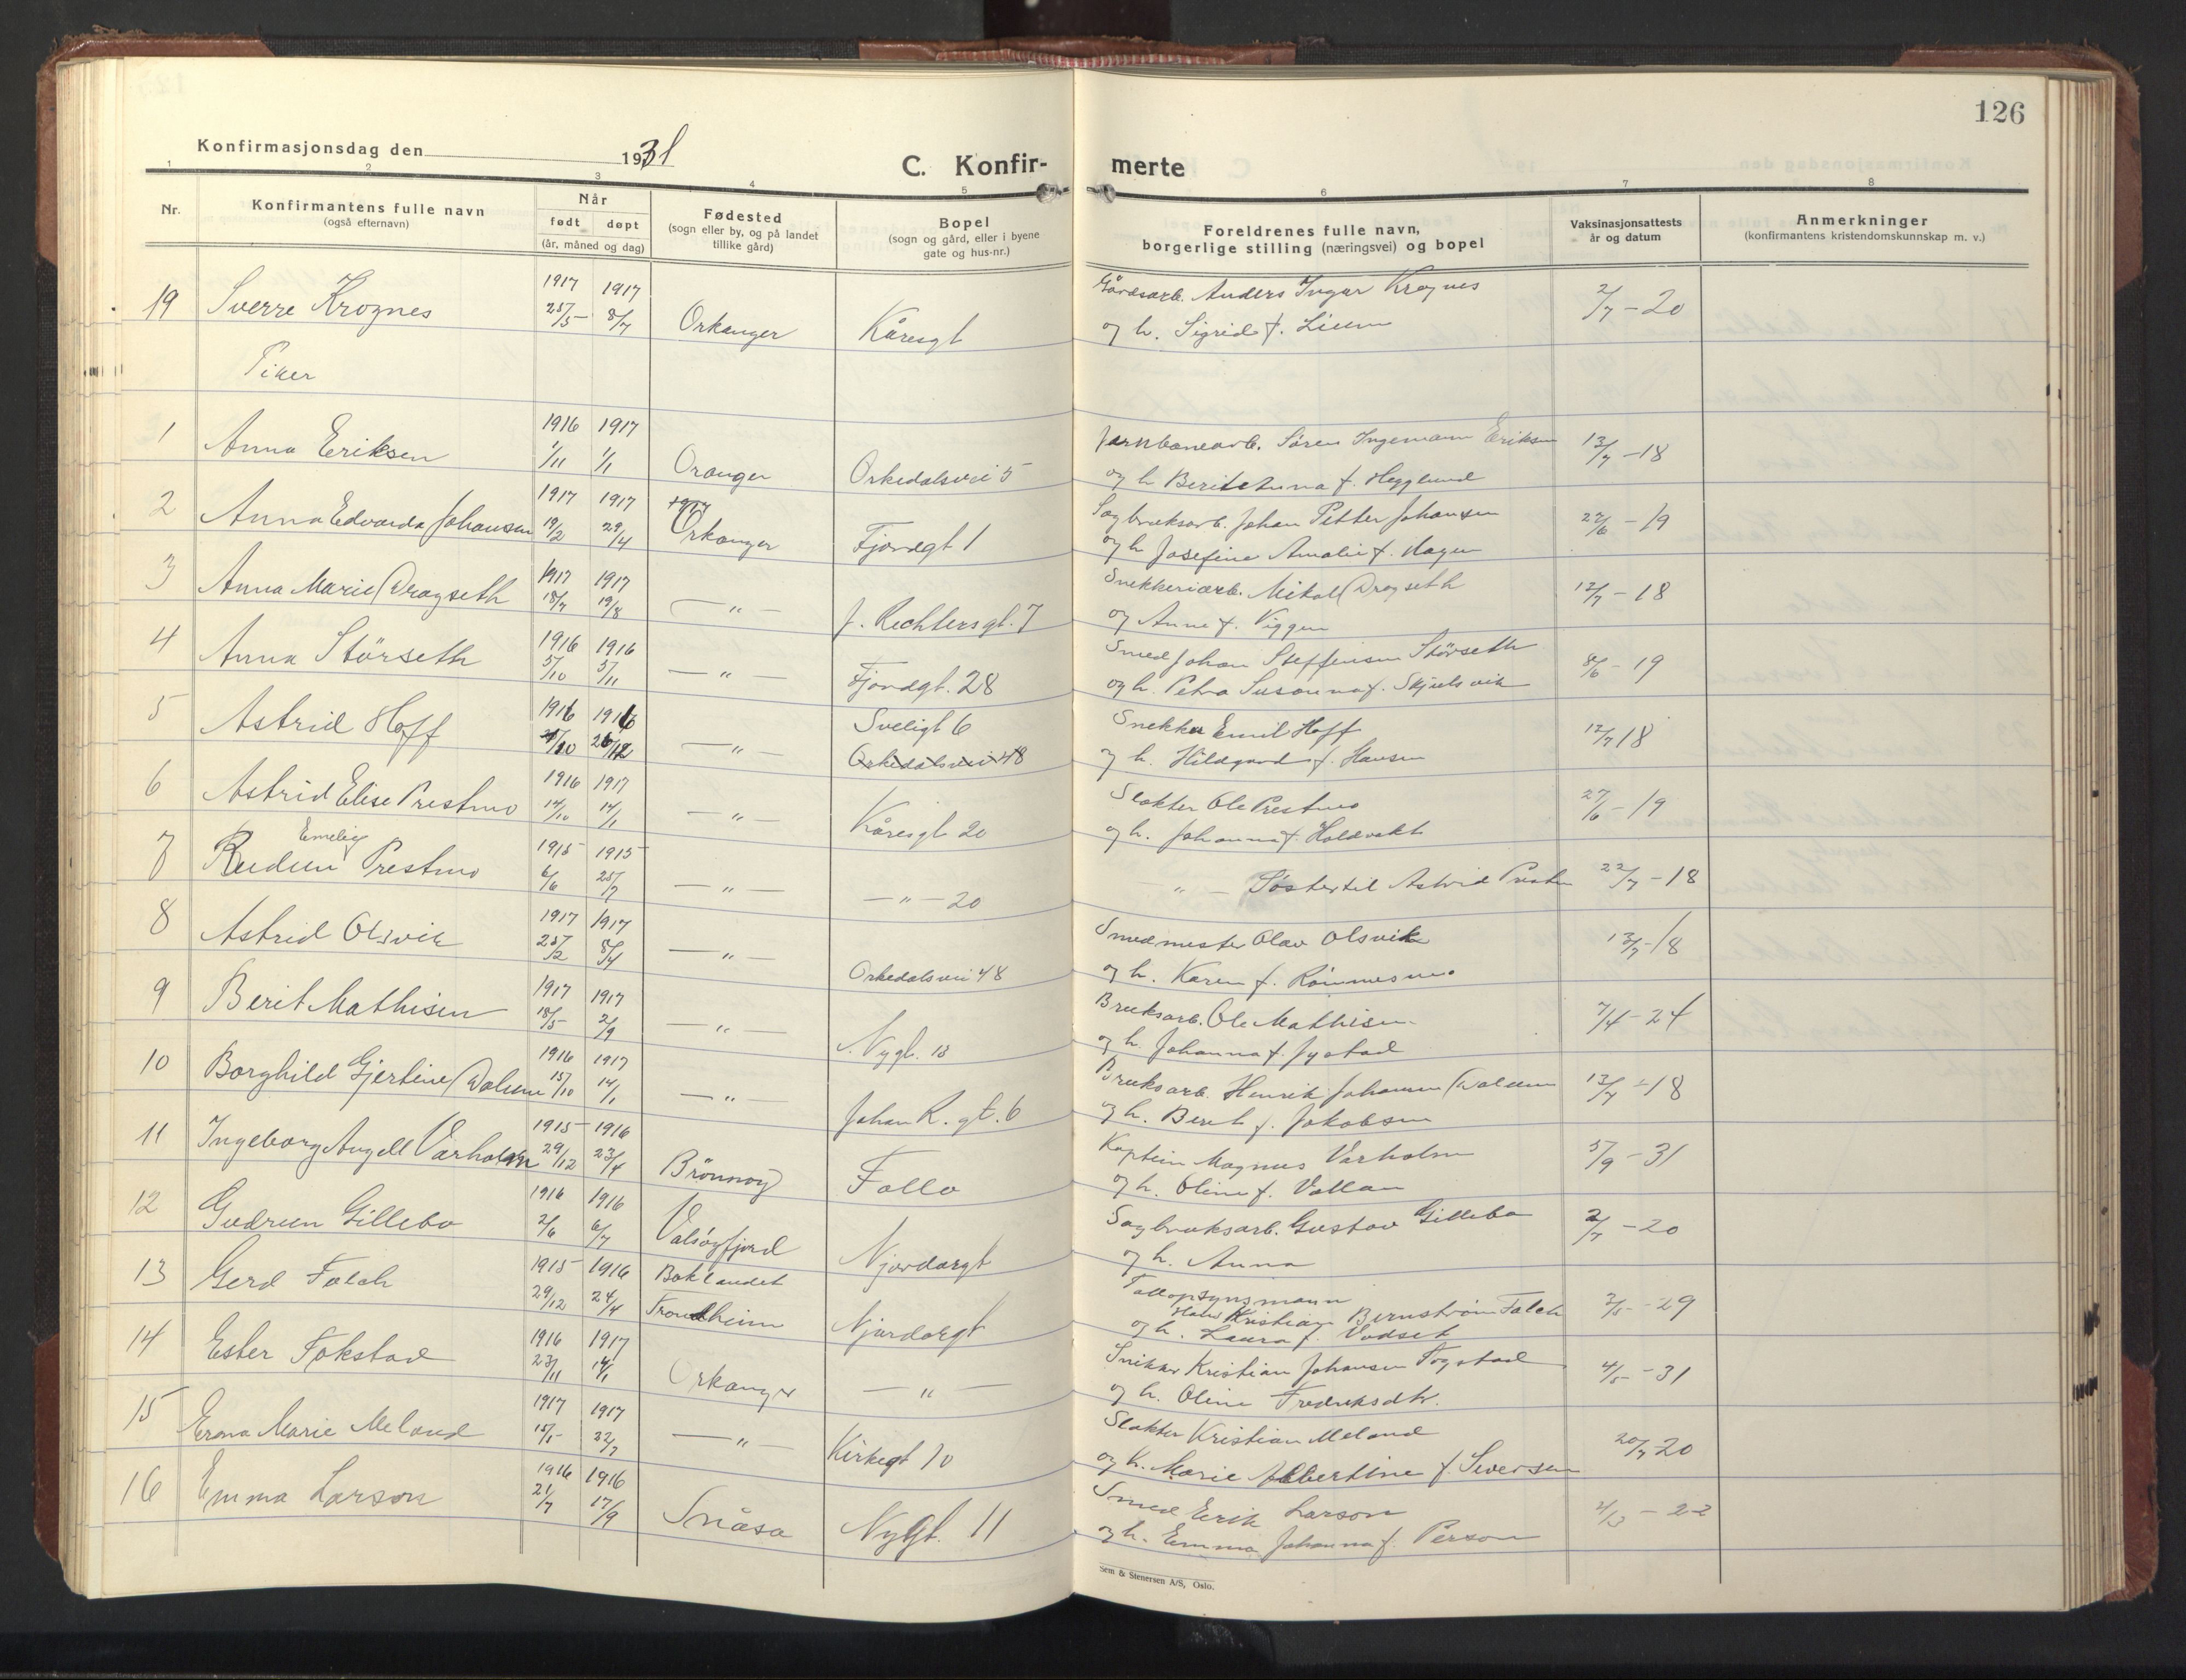 126
Konfirmasjonsdag den 1931
C. Konfir-
merte
1 2 3 4 5 6 7 8
Nr.
Konfirmantens fulle navn
(også efternavn)
Når
født døpt
(år, måned og dag)
Fødested
(sogn eller by, og på landet
tillike gård)
Bopel
(sogn og gård, eller i byene
gate og hus-nr.)
Foreldrenes fulle navn,
borgerlige stilling (næringsvei) og bopel
Vaksinasjonsattests
år og datum
Anmerkninger
(konfirmantens kristendomskunnskap m. v.)
1917 1917 Gårdsarb. Anders Ingvar Krognes
19 Sverre Krognes 25/5 8/7 Orkanger Kåresgt og h. Sigrid f. Lium 2/7 - 20
Piker
1916 1917 Jernbanearb. Sören Ingemann Eriksen
1 Anna Eriksen 1/11 1/1 Oranger Orkedalsvei 5 og h Berit Anna f. Hegglund 13/7 - 18
1917 1917 Sagbruksarb. Johan Petter Johansen
2 Anna Edvarda Johansen 19/2 29/4 Orkanger Fjordgt 1 og h Josefine Amalie f. Hagen 27/6 - 19
1917 1917 Snekkeriarb. Mikal Dragseth
3 Anna Marie Dragseth 18/7 19/8 — " — J. Rechtersgt. 7 og Anne f. Viggen 12/7 - 18
1916 1916 Smed Johan Steffensen Störseth
4 Anna Störseth 5/10 5/11 — " — Fjordgt. 28 og h. Petra Susanna f. Skjelsvik 8/6 - 19
1916 1916 Sveligt 6 Snekker Emil Hoff
5 Astrid Hoff 26/12 — " — Orkedalsvei 48 og h. Hildegard f. Hansen 12/7 18
1916 1917 Slakter Ole Prestmo
6 Astrid Elise Prestmo 14/10 14/1 — " — Kåresgt 20 og h. Johanna f. Holdvekt 27/6 - 19
Emelie 1915 1915
7 Reidun Prestmo 6/6 25/7 — " — — " — 20 — " — Söster til Astrid Prestm 22/7 - 18
1917 1917 Smedmester Olav Olsvik
8 Astrid Olsvik 25/2 8/4 — " — Orkedalsvei 48 og h. Karen f. Römmesmo 13/7 - 18
1917 1917 Bruksarb. Ole Mathisen
9 Berit Mathisen 18/5 2/9 — " — Nygt. 13 og h. Johanna f. Jystad 7/4 - 24
1916 1917 Bruksarb. Henrik Johansen Dalum
10 Borghild Gjertine Dalum 15/10 14/1 — " — Johan R. gt. 6 og h. Beret f. Jakobsen 13/7 - 18
1915 1916 Kaptein Magnus Varholm
11 Ingeborg Angell Varholm 29/12 23/4 Brönnöy Follo og h. Oline f. Vollan 5/9 - 31
1916 1916 Sagbruksarb. Gustav Gillebo
12 Gudrun Gillebo 2/6 6/7 Valsöyfjord Njordargt og h. Anna 2/7 - 20
1915 1916 Baklandet Tollopsynsmann
13 Gerd Falch 29/12 24/4 Trondheim Njordargt Hans Kristian Bernström Falch 3/5 - 29
og h. Laura f. Vadset
1916 1917 Snikker Kristian Johansen Fogstad
14 Ester Fokstad 23/11 14/1 Orkanger — " — og h. Oline Fredriksdtr. 4/5 - 31
1917 1917 Slakter Kristian Meland
15 Erna Marie Meland 15/5 22/7 — " — Kirkegt 10 og h. Marie Albertine f. Sivertsen 20/7 20
1916 1916 Smed Erik Larson
16 Emma Larson 21/7 17/9 Snåsa Nygt. 11 og h. Emma Johanna f. Person 4/3 - 22
Sem & Stenersen A/S, Oslo.